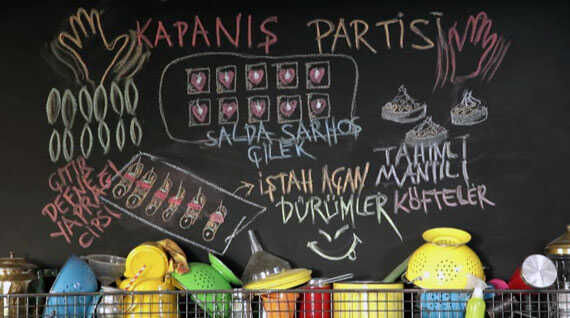 KAPANIŞ PARTİSİ
SALDA SARHOŞ
ÇİLEK
TAHINLI
MANTILI
KÖFTELER
İŞTAH AÇAN
DÜRÜMLER
ÇITIR
DEFNE
YAPRAĞI
CİPSİ